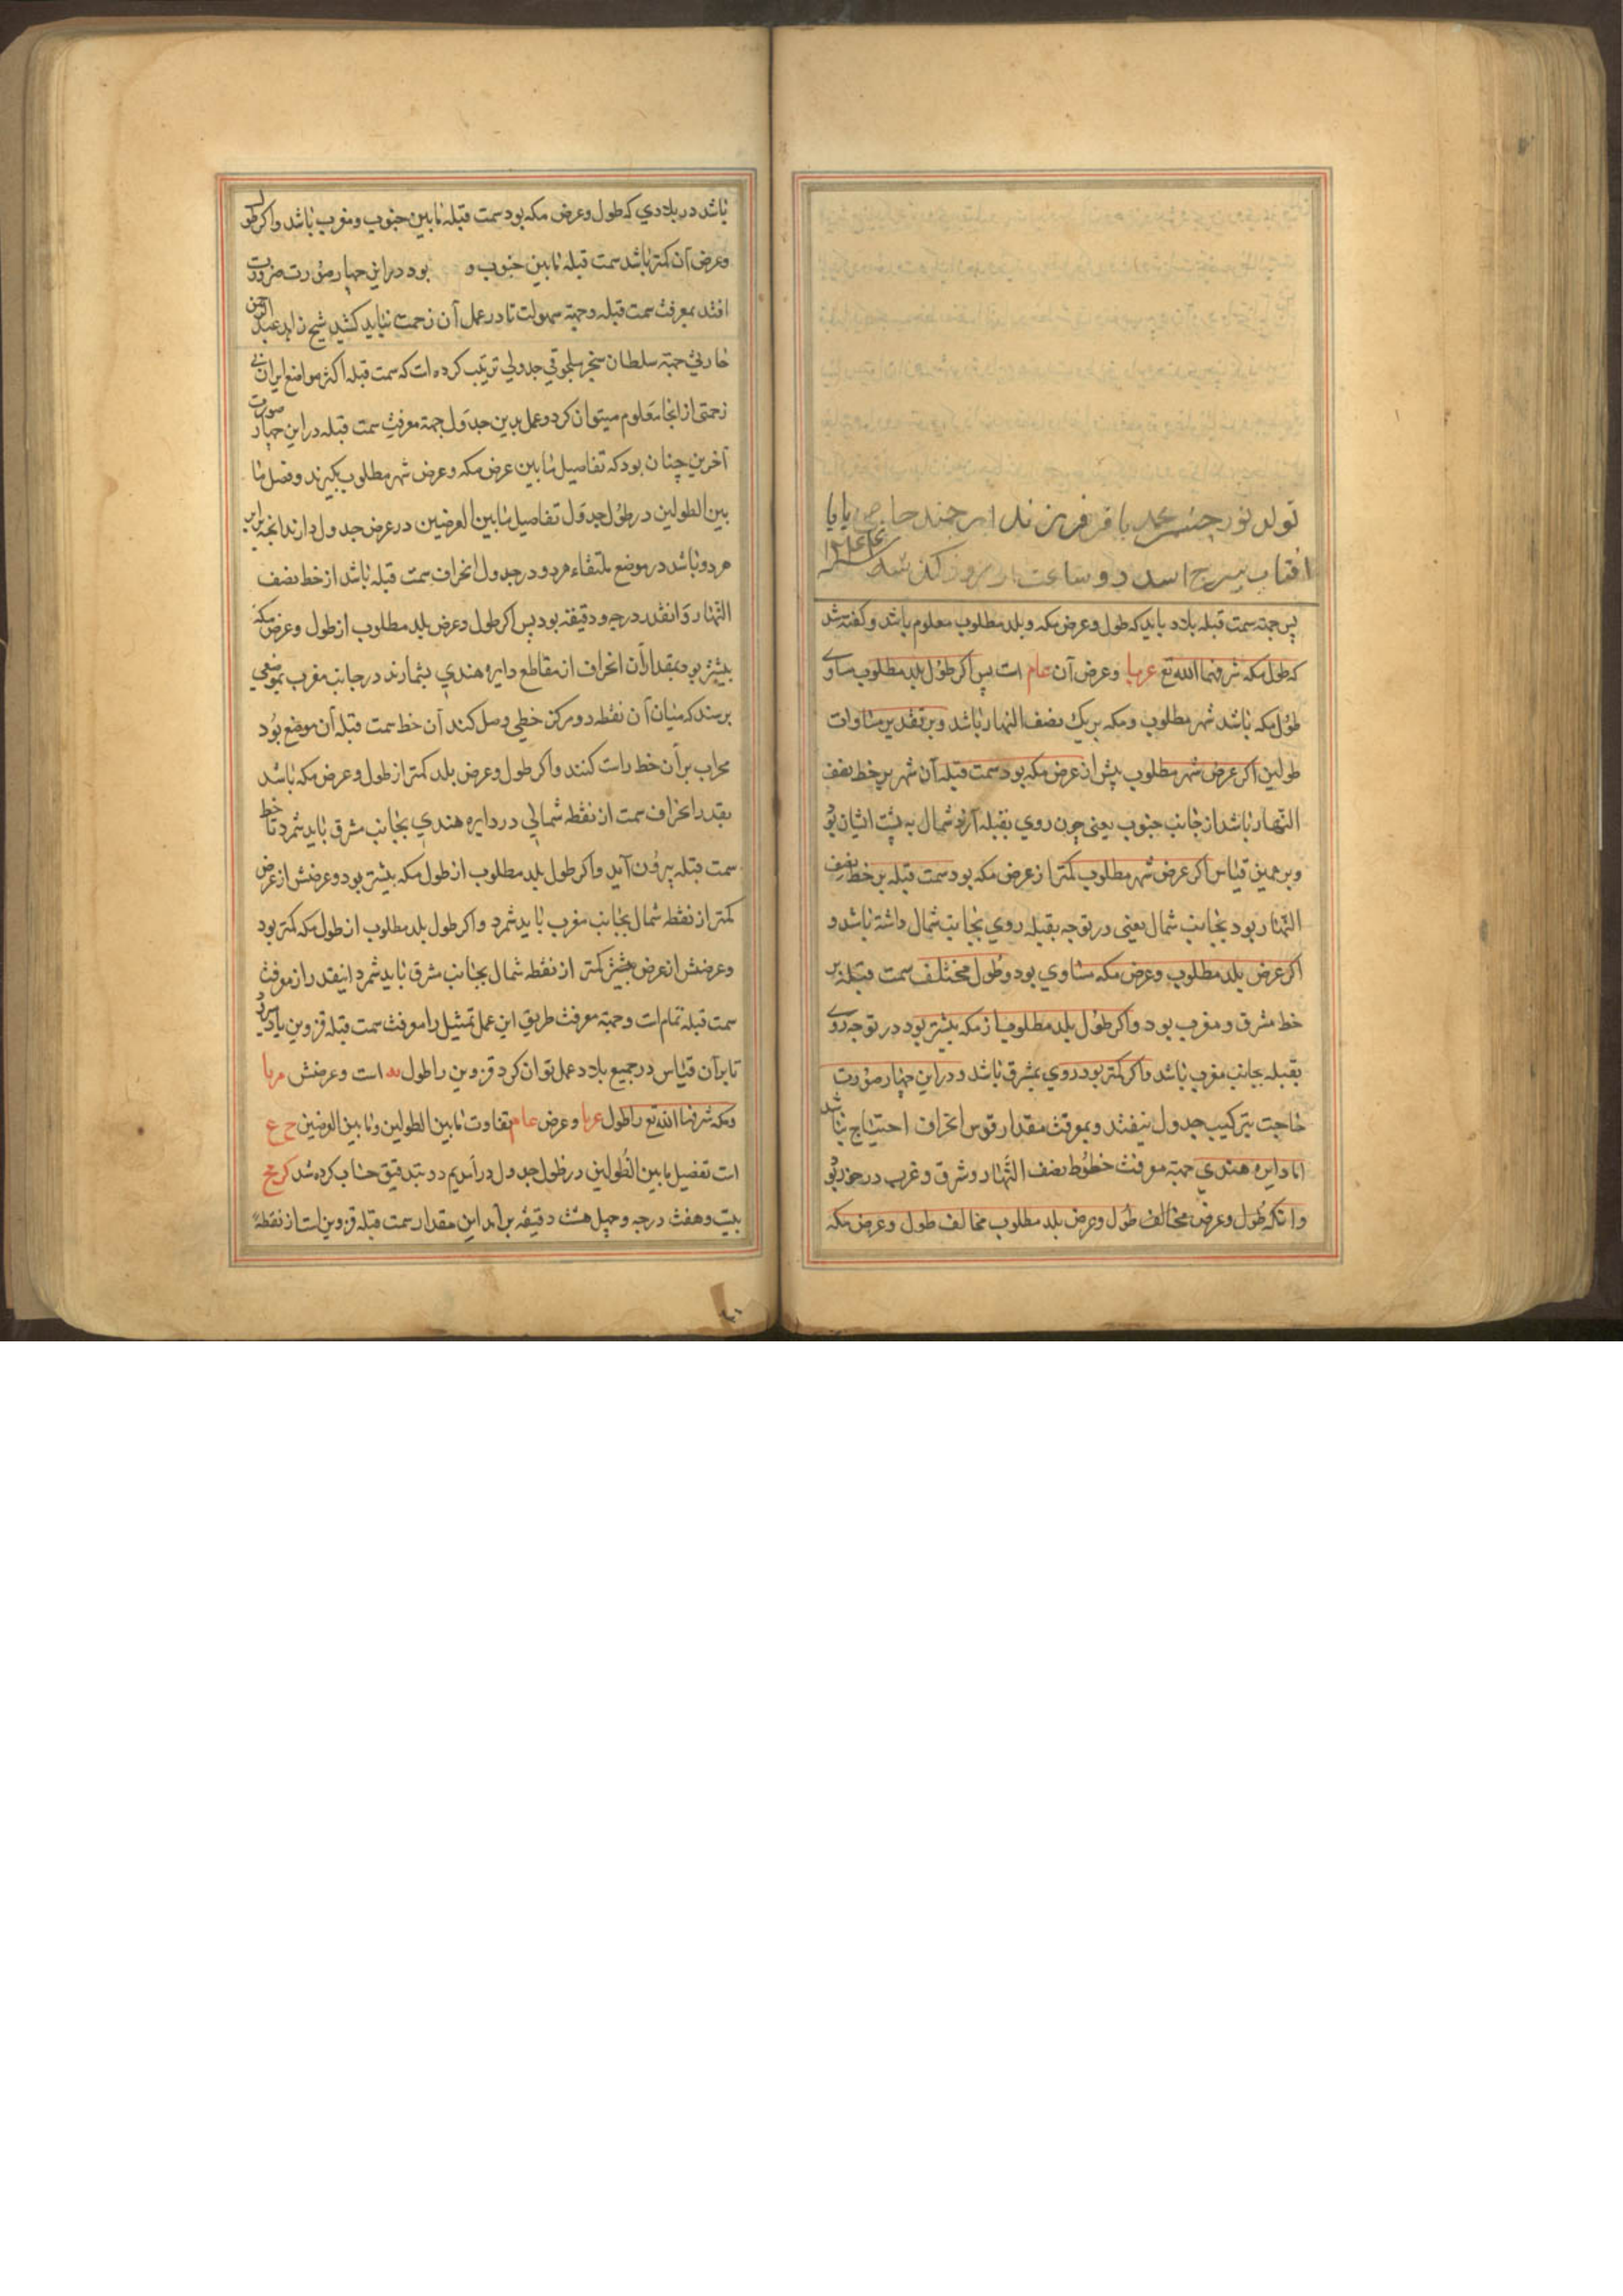 تولد نور چشم محمد باقر فرزند ارجمند حاجی بابا
افتاب ببرج اسد دو ساعت از روز گذشته سنه ۱۲۴۴
پس جهة سمت قبله بلاد باید که طول و عرض مکه و بلد مطلوب معلوم باشد و گفته شد
که طول مکه شرفها الله تع عربا و عرض آن عام است پس اگر طول بلد مطلوب مساوی
طول مکه باشد شهر مطلوب و مکه بریک نصف النهار باشد و بر تقدیر مساوات
طولین اگر عرض شهر مطلوب بیش از عرض مکه بود سمت قبله آن شهر بر خط نصف
النهار باشد از جانب جنوب یعنی چون روی بقبله آرند شمال به پشت ایشان بود
و برهمین قیاس اگر عرض شهر مطلوب کمتر از عرض مکه بود سمت قبله بر خط نصف
النهار بود بجانب شمال یعنی در توجه بقبله روی بجانب شمال داشته باشد و
اگر عرض بلد مطلوب و عرض مکه مساوی بود و طول مختلف سمت قبله بر
خط مشرق و مغرب بود و اگر طول بلد مطلوب از مکه بیشتر بود در توجه روی
بقبله بجانب مغرب باشد و اگر کمتر بود روی بمشرق باشد و دراین چهار صورت
حاجت بترکیب جدول نیفتد و بمعرفت مقدار قوس انحراف احتیاج نباشد
اما دایره هندی جهة معرفت خطوط نصف النهار و شرق و غرب درخور بود
وانکه طول و عرض مخالف طول و عرض بلد مطلوب مخالف طول و عرض مکه
باشد در بلادی که طول و عرض مکه بود سمت قبله مابین جنوب و مغرب باشد و اگر طول
و عرض آن کمتر باشد سمت قبله مابین جنوب و بود دراین چهار صورت ضرورت
افتد بمعرفت سمت قبله و جهة سهولت تا در عمل آن زحمت نباید کشید شیخ زاهد عبد الرحمن
خازنی جهة سلطان سنجر سلجوقی جدولی ترتیب کرده است که سمت قبله اکثر مواضع ایران بی
زحمتی از انجا معلوم میتوان کرد و عمل بدین جدول جهة معرفت سمت قبله دراین چهار صورت
آخرین چنان بود که تفاصیل مابین عرض مکه و عرض شهر مطلوب بگیرند و فصل ما
بین الطولین در طول جدول تفاصیل مابین العرضین در عرض جدول دارند انچه برابر
هردو باشد در موضع ملتقاء هردو در جدول انحراف سمت قبله باشد از خط نصف
النهار و انقدر درجه و دقیقه بود پس اگر طول و عرض بلد مطلوب از طول و عرض مکه
بیشتر بود بمقدار آن انحراف از مقاطع دایره هندی بشمارند در جانب مغرب بموضعی
برسند که میان آن نقطه و مرکز خطی وصل کنند آن خط سمت قبله آن موضع بود
محراب بر آن خط راست کنند و اگر طول و عرض بلد کمتر از طول و عرض مکه باشد
بقدر انحراف سمت از نقطه شمالی در دایره هندی بجانب مشرق باید شمرد تا خط
سمت قبله بیرون آید و اگر طول بلد مطلوب از طول مکه بیشتر بود و عرضش از عرض
کمتر از نقطه شمال بجانب مغرب باید شمرد و اگر طول بلد مطلوب از طول مکه کمتر بود
و عرضش از عرض بیشتر کمتر از نقطه شمال بجانب مشرق باید شمرد اینقدر از معرفت
سمت قبله تمام است و جهة معرفت طریق این عمل تمثیل را معرفت سمت قبله قزوین یاد کرد
تا برآن قیاس در جمیع بلاد عمل توان کرد قزوین را طول است و عرضش
و مکه شرفها الله تع را طول عربا و عرض عام تفاوت مابین الطولین و مابین العرضین
است تفصیل مابین الطولین در طول جدول در آمدیم و بتدقیق حساب کرده شد
بیست و هفت درجه و چهل هشت دقیقه برآمد این مقدار سمت قبله قزوین است از نقطه